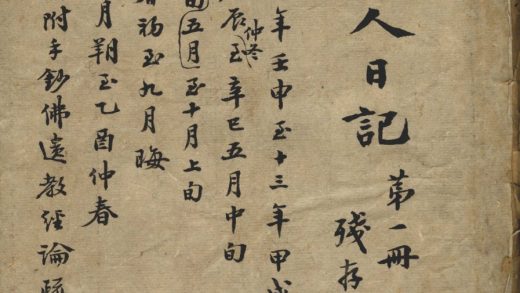 人日記 第一冊
殘存
年壬申至十三年甲戌
辰仲冬至辛巳五月中旬
五月至十月上旬
初至九月晦
月朔至乙酉仲春
附手鈔佛遺教經論疏